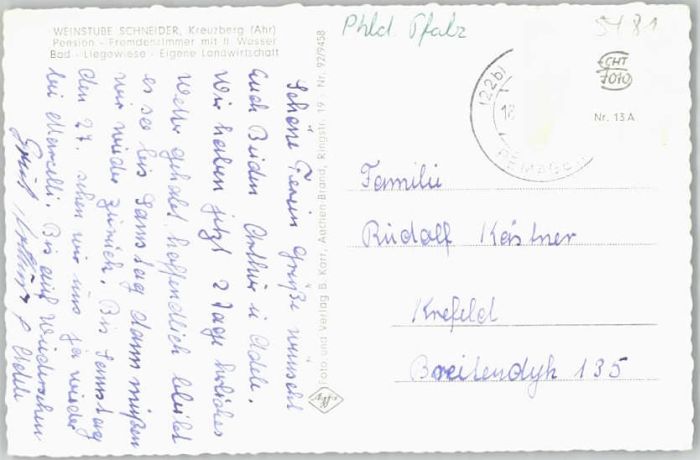 WEINSTUBE SCHNEIDER, Kreuzberg (Ahr)
Pension - Fremdenzimmer mit fl. Wasser
Bad - Liegewiese - Eigene Landwirtschaft
Schöne Ferien Grüße wünscht
Euch Beiden Arthur u Adele.
Wir haben jetzt 2 Tage herliches
Wetter gehabt hoffendlich bleibt
es so bis Samstag dann müßen
wir wieder zurück. Bis Samstag
den 27. sehen wir uns ja wieder
bei Bis auf Wiedersehen
Gruß Arthur & Adele
Foto und Verlag B. Karr, Aachen-Brand, Ringstr. 19 - Nr. 92/9458
Phld. Pfalz
5481
(22b)
18
REMAGEN
CHT
7010
Nr. 13 A
Familie
Rudolf Kästner
Krefeld
Breitendyk 135